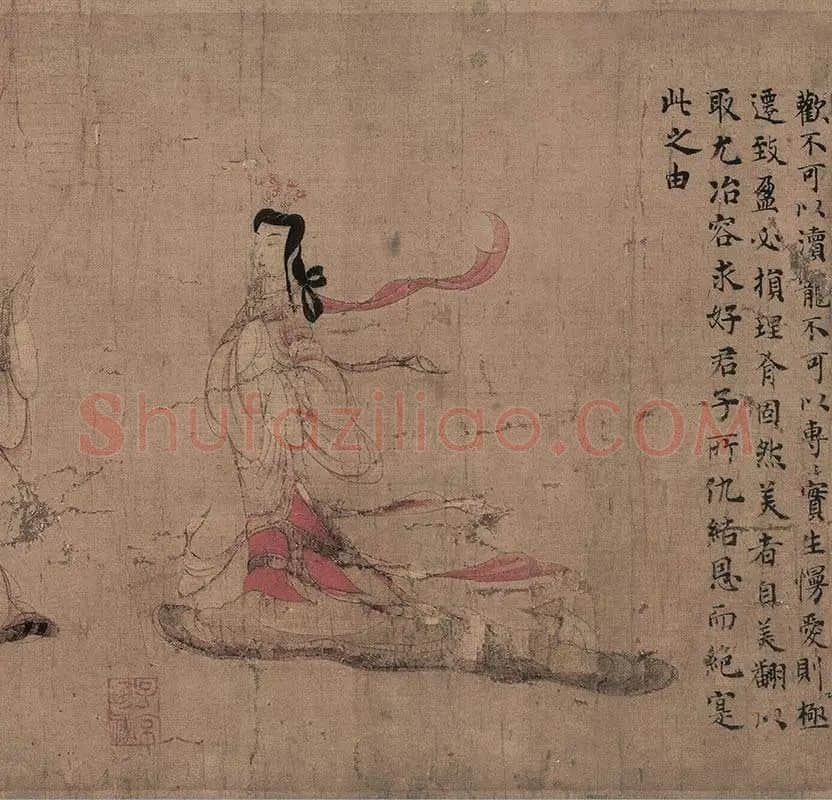 歡不可以瀆寵不可以專〻實生慢愛則極
遷致盈必損理有固然美者自美翻以
取尤冶容求好君子所仇結恩而絕寔
此之由
Shufaziliao.COM